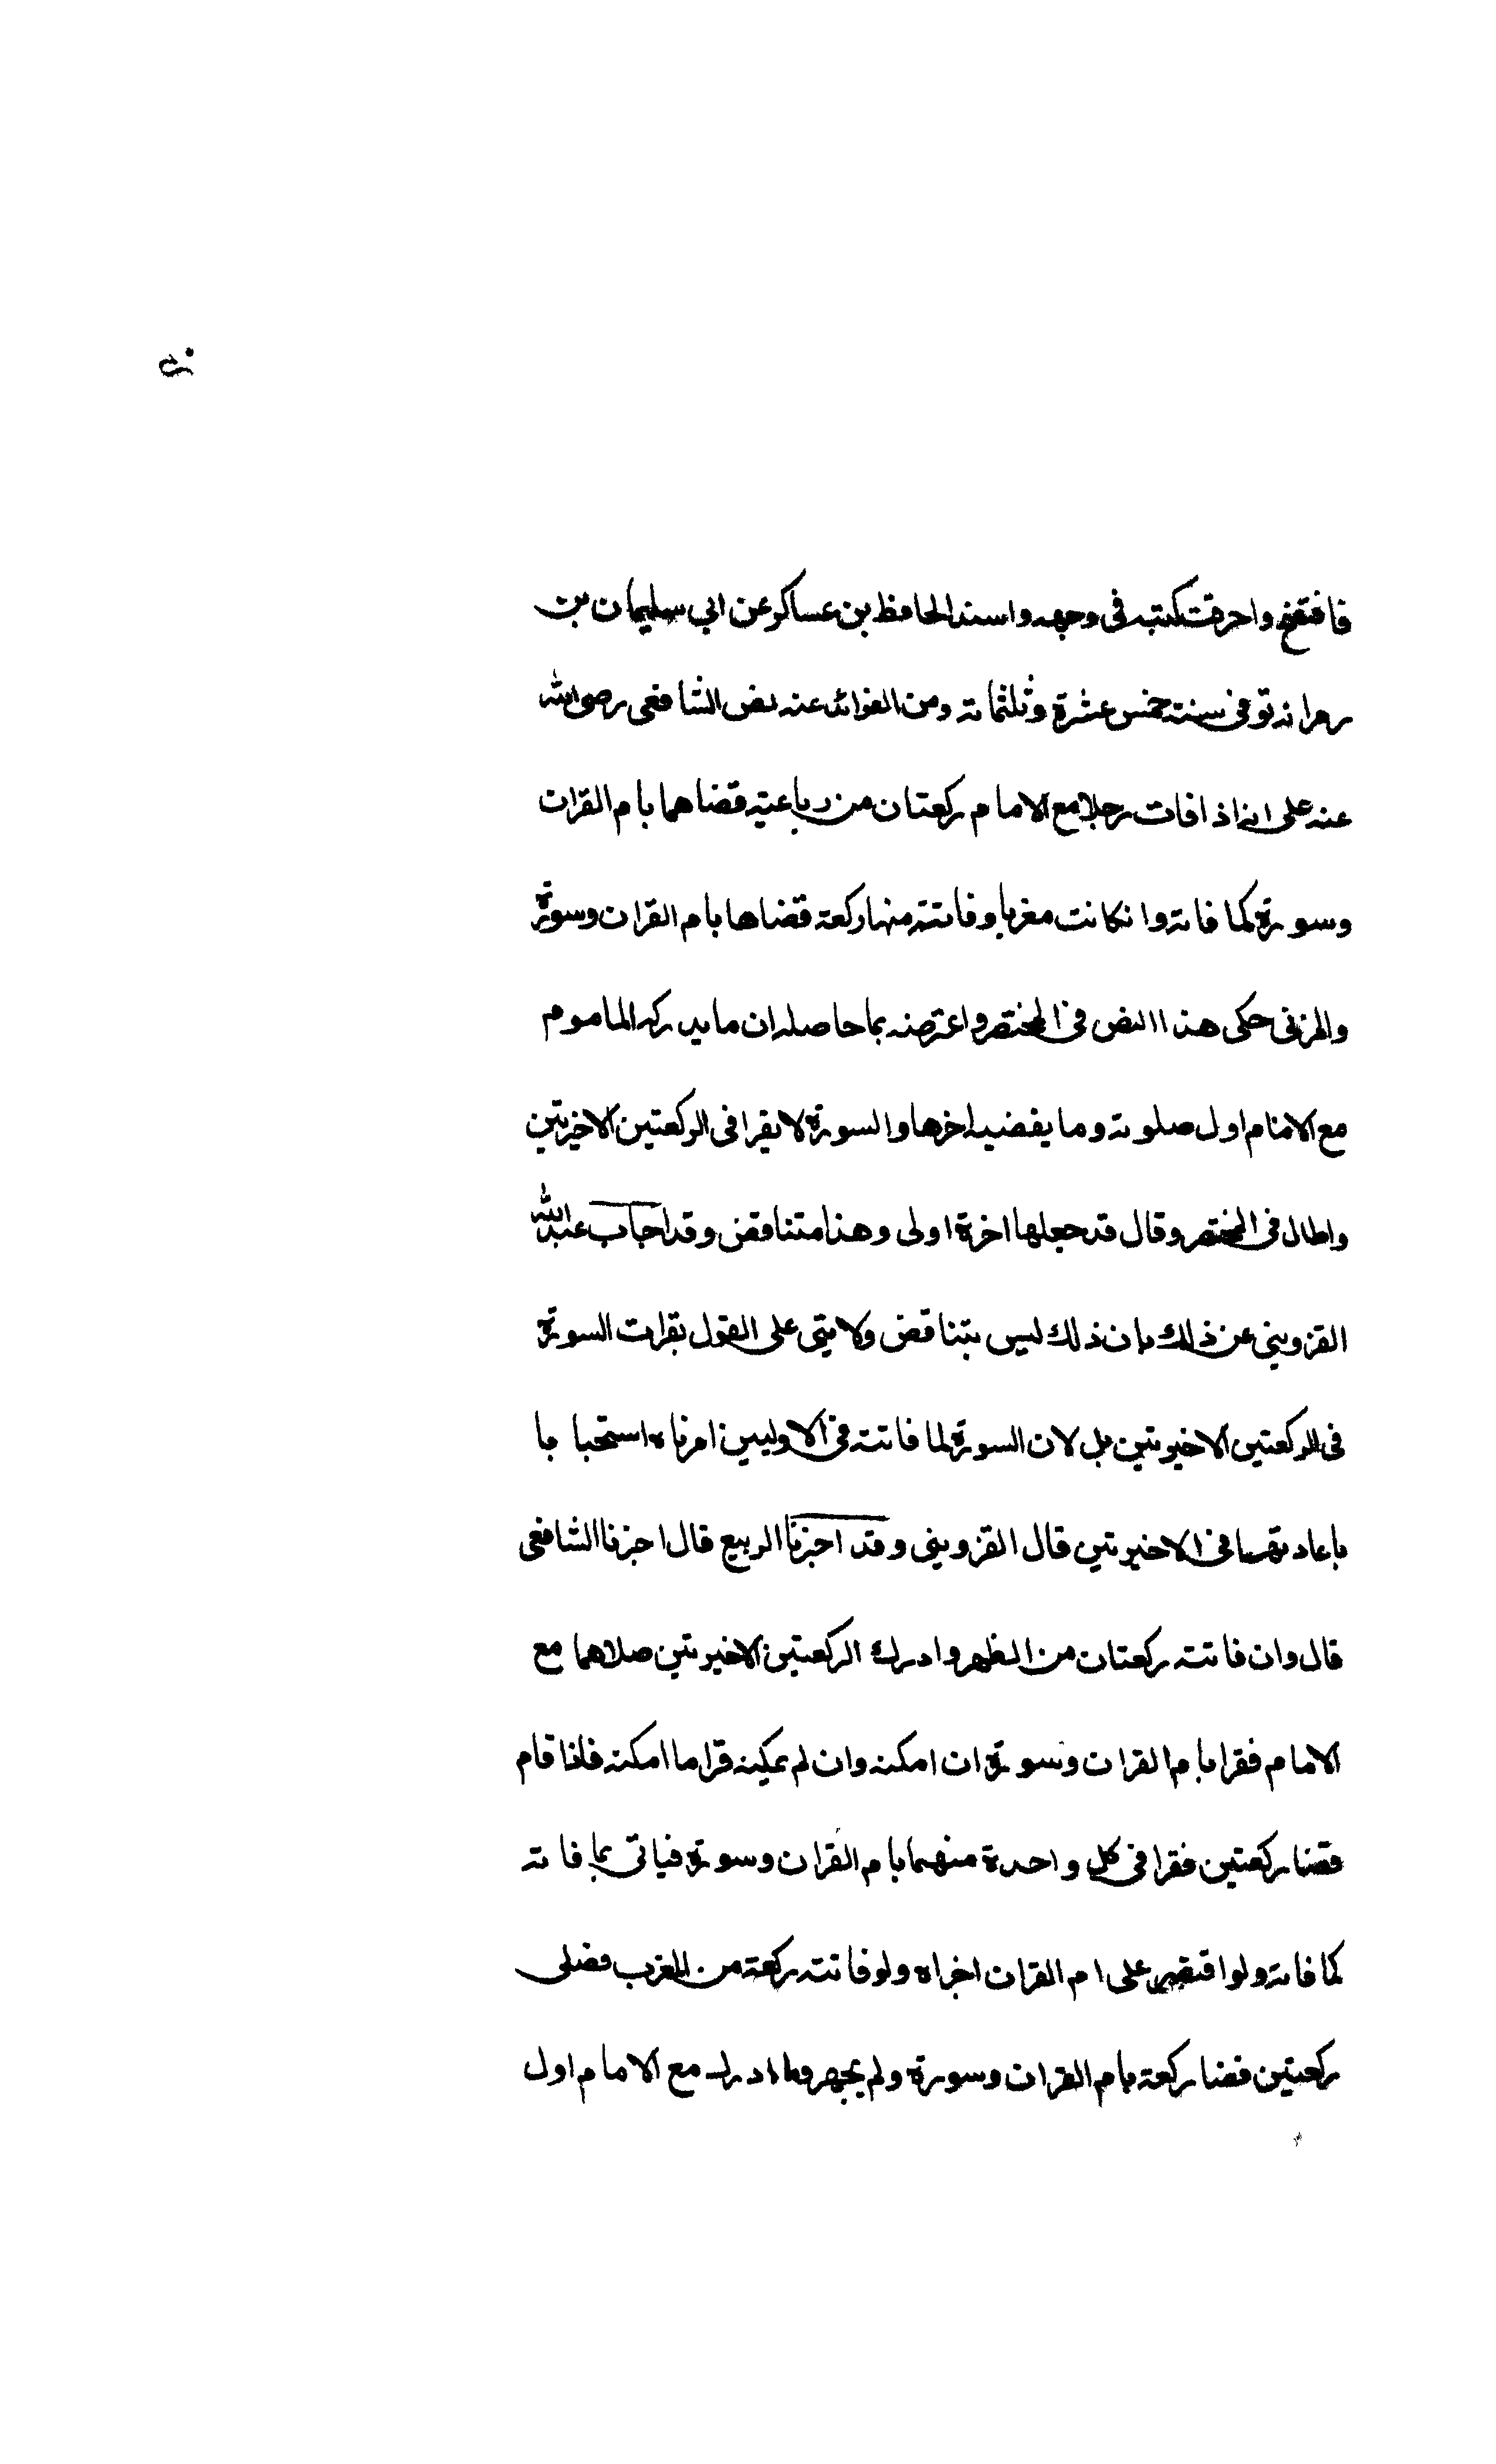 فافتضح واحرقت كتبه في وجهه واسند الحافظ بن عساكر عن ابي سليمان بن
زبر انه توفي سنة خمس عشرة وثلثمائة ومن الفوائد عنه نص الشافعي رضي الله
عنه على انه اذا فات رجلا مع الامام ركعتان من رباعية قضاهما بام القران
وسورة كما فاته وان كانت مغربا وفاتته منها ركعة قضاها بام القران وسورة
والمزني حكى هذا النص في المختصر واعترضه بما حاصله ان ما يدركه الماموم
مع الامام اول صلوته وما يقضيه اخرها والسورة لا يقرا في الركعتين الاخيرتين
واطال في المختصر وقال قد جعلها اخرة اولى وهذا متناقض وقد اجاب عبد الله
القزويني عن ذلك بان ذلك ليس بتناقض ولا يتي على القول بقرات السورة
في الركعتين الاخيرتين بل لان السورة لما فاتته في الاوليين امرناه استحبابا
باعادتهما في الاخيرتين قال القزويني وقد اخبرنا الربيع قال اخبرنا الشافعي
قال وان فاتته ركعتان من الظهر وادرك الركعتين الاخيرتين صلاهما مع
الامام فقرا بام القران وسورة ان امكنه وان لم يمكنه قرا ما امكنه فاذا قام
قضا ركعتين فقرا في كل واحدة منهما بام القران وسورة فياتي بما فاته
كما فاته ولو اقتصر على ام القران اجزاه ولو فاتته ركعة من المغرب فصلى
ركعتين قضا ركعة بام القران وسورة ولم يجهر وما ادرك مع الامام اول